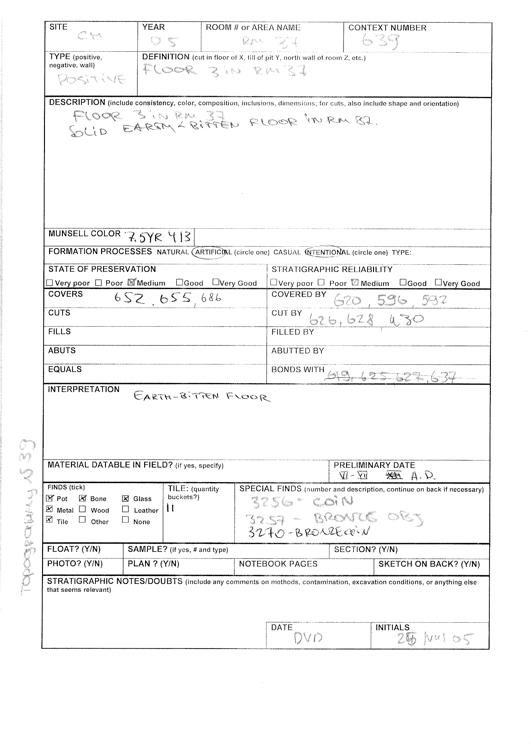 SITE CM
YEAR 05
ROOM # or AREA NAME RM 37
CONTEXT NUMBER 639
TYPE (positive, negative, wall) POSITIVE
DEFINITION (cut in floor of X, fill of pit Y, north wall of room Z, etc.)
FLOOR 3 IN RM 37
DESCRIPTION (include consistency, color, composition, inclusions, dimensions; for cuts, also include shape and orientation)
FLOOR 3 IN RM 37
SOLID EARTH-BITTEN FLOOR IN RM 37.
MUNSELL COLOR 7.5YR 4/3
FORMATION PROCESSES NATURAL ARTIFICIAL (circle one) CASUAL INTENTIONAL (circle one) TYPE:
STATE OF PRESERVATION
☐Very poor ☐ Poor ☒Medium ☐Good ☐Very Good
STRATIGRAPHIC RELIABILITY
☐Very poor ☐ Poor ☒ Medium ☐Good ☐Very Good
COVERS 652, 655, 686
COVERED BY 620, 596, 592
CUTS
CUT BY 626, 628 430
FILLS
FILLED BY
ABUTS
ABUTTED BY
EQUALS
BONDS WITH 619, 625 627, 637
INTERPRETATION
EARTH-BITTEN FLOOR
MATERIAL DATABLE IN FIELD? (if yes, specify)
PRELIMINARY DATE
VI - VII A.D.
FINDS (tick)
☒ Pot ☒ Bone ☒ Glass
☒ Metal ☐ Wood ☐ Leather
☒ Tile ☐ Other ☐ None
TILE: (quantity buckets?)
II
SPECIAL FINDS (number and description, continue on back if necessary)
3256 - COIN
3257 - BRONZE OBJ
3270 - BRONZE COIN
FLOAT? (Y/N)
SAMPLE? (if yes, # and type)
SECTION? (Y/N)
PHOTO? (Y/N)
PLAN ? (Y/N)
NOTEBOOK PAGES
SKETCH ON BACK? (Y/N)
STRATIGRAPHIC NOTES/DOUBTS (include any comments on methods, contamination, excavation conditions, or anything else that seems relevant)
DATE DVD
INITIALS
05
Topography